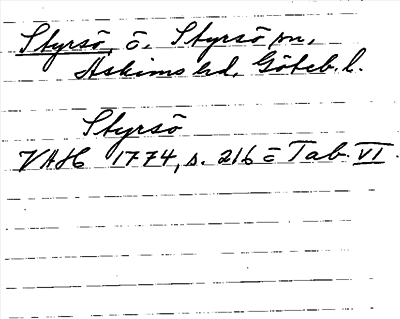 Styrsö, ö, Styrsö sn,
Askims hd, Göteb. l.
Styrsö
VAH 1774, s. 216 o Tab. VI.